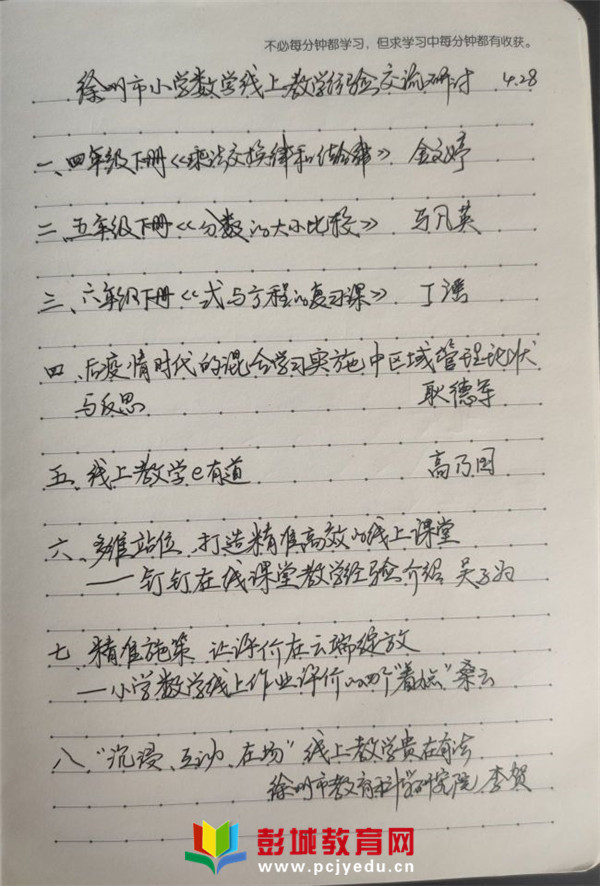 不必每分钟都学习，但求学习中每分钟都有收获。
徐州市小学数学线上教学经验交流研讨 4.28
一、四年级下册《乘法交换律和结合律》 金文婷
二、五年级下册《分数的大小比较》 马凡英
三、六年级下册《式与方程的复习课》 丁瑶
四、后疫情时代的混合学习实施中区域管理现状
与反思 耿德军
五、线上教学e有道 高乃国
六、多维站位，打造精准高效的线上课堂
——钉钉在线课堂教学经验介绍 吴
七、精准施策 让评价在云端绽放
——小学数学线上作业评价的四个"着力点" 桑云
八、"沉浸、互动、在场"线上教学贵在有法
徐州市教育科学研究院 李贺
彭城教育网
www.pcjyedu.cn